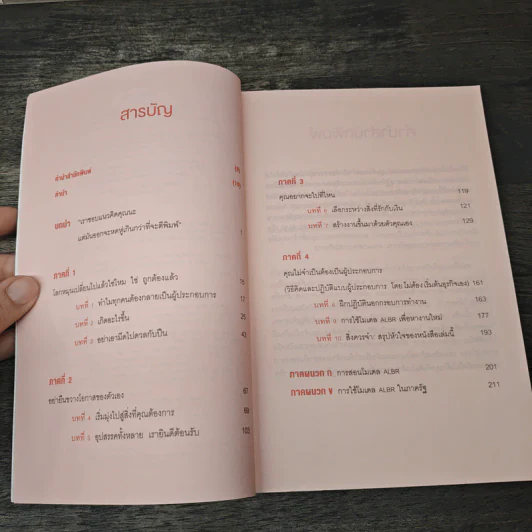 สารบัญ
คำนำสำนักพิมพ์
คำนำ
บทนำ "เราชอบแนวคิดคุณนะ
แต่มันออกจะหดหู่เกินกว่าที่จะตีพิมพ์"
ภาคที่ 1
โลกหมุนเปลี่ยนไปแล้วใช่ไหม ใช่ ถูกต้องแล้ว 15
บทที่ 1 ทำไมทุกคนต้องกลายเป็นผู้ประกอบการ 17
บทที่ 2 เกิดอะไรขึ้น 25
บทที่ 3 อย่าเอามีดไปดวลกับปืน 43
ภาคที่ 2
อย่ายืนขวางโอกาสของตัวเอง 67
บทที่ 4 เริ่มมุ่งไปสู่สิ่งที่คุณต้องการ 69
บทที่ 5 อุปสรรคทั้งหลาย เรายินดีต้อนรับ 103
ภาคที่ 3
คุณอยากจะไปที่ไหน 119
บทที่ 6 เลือกระหว่างสิ่งที่รักกับเงิน 121
บทที่ 7 สร้างงานขึ้นมาด้วยตัวคุณเอง 139
ภาคที่ 4
คุณไม่จำเป็นต้องเป็นผู้ประกอบการ
(วิธีคิดและปฏิบัติแบบผู้ประกอบการ โดยไม่ต้องเริ่มต้นธุรกิจเอง) 161
บทที่ 8 ฝึกปฏิบัตินอกกรอบการทำงาน 163
บทที่ 9 การใช้โมเดล ALBR เพื่อหางานใหม่ 177
บทที่ 10 สิ่งควรจำ: สรุปหัวใจของหนังสือเล่มนี้ 193
ภาคผนวก ก การสอนโมเดล ALBR 201
ภาคผนวก ข การใช้โมเดล ALBR ในภาครัฐ 211